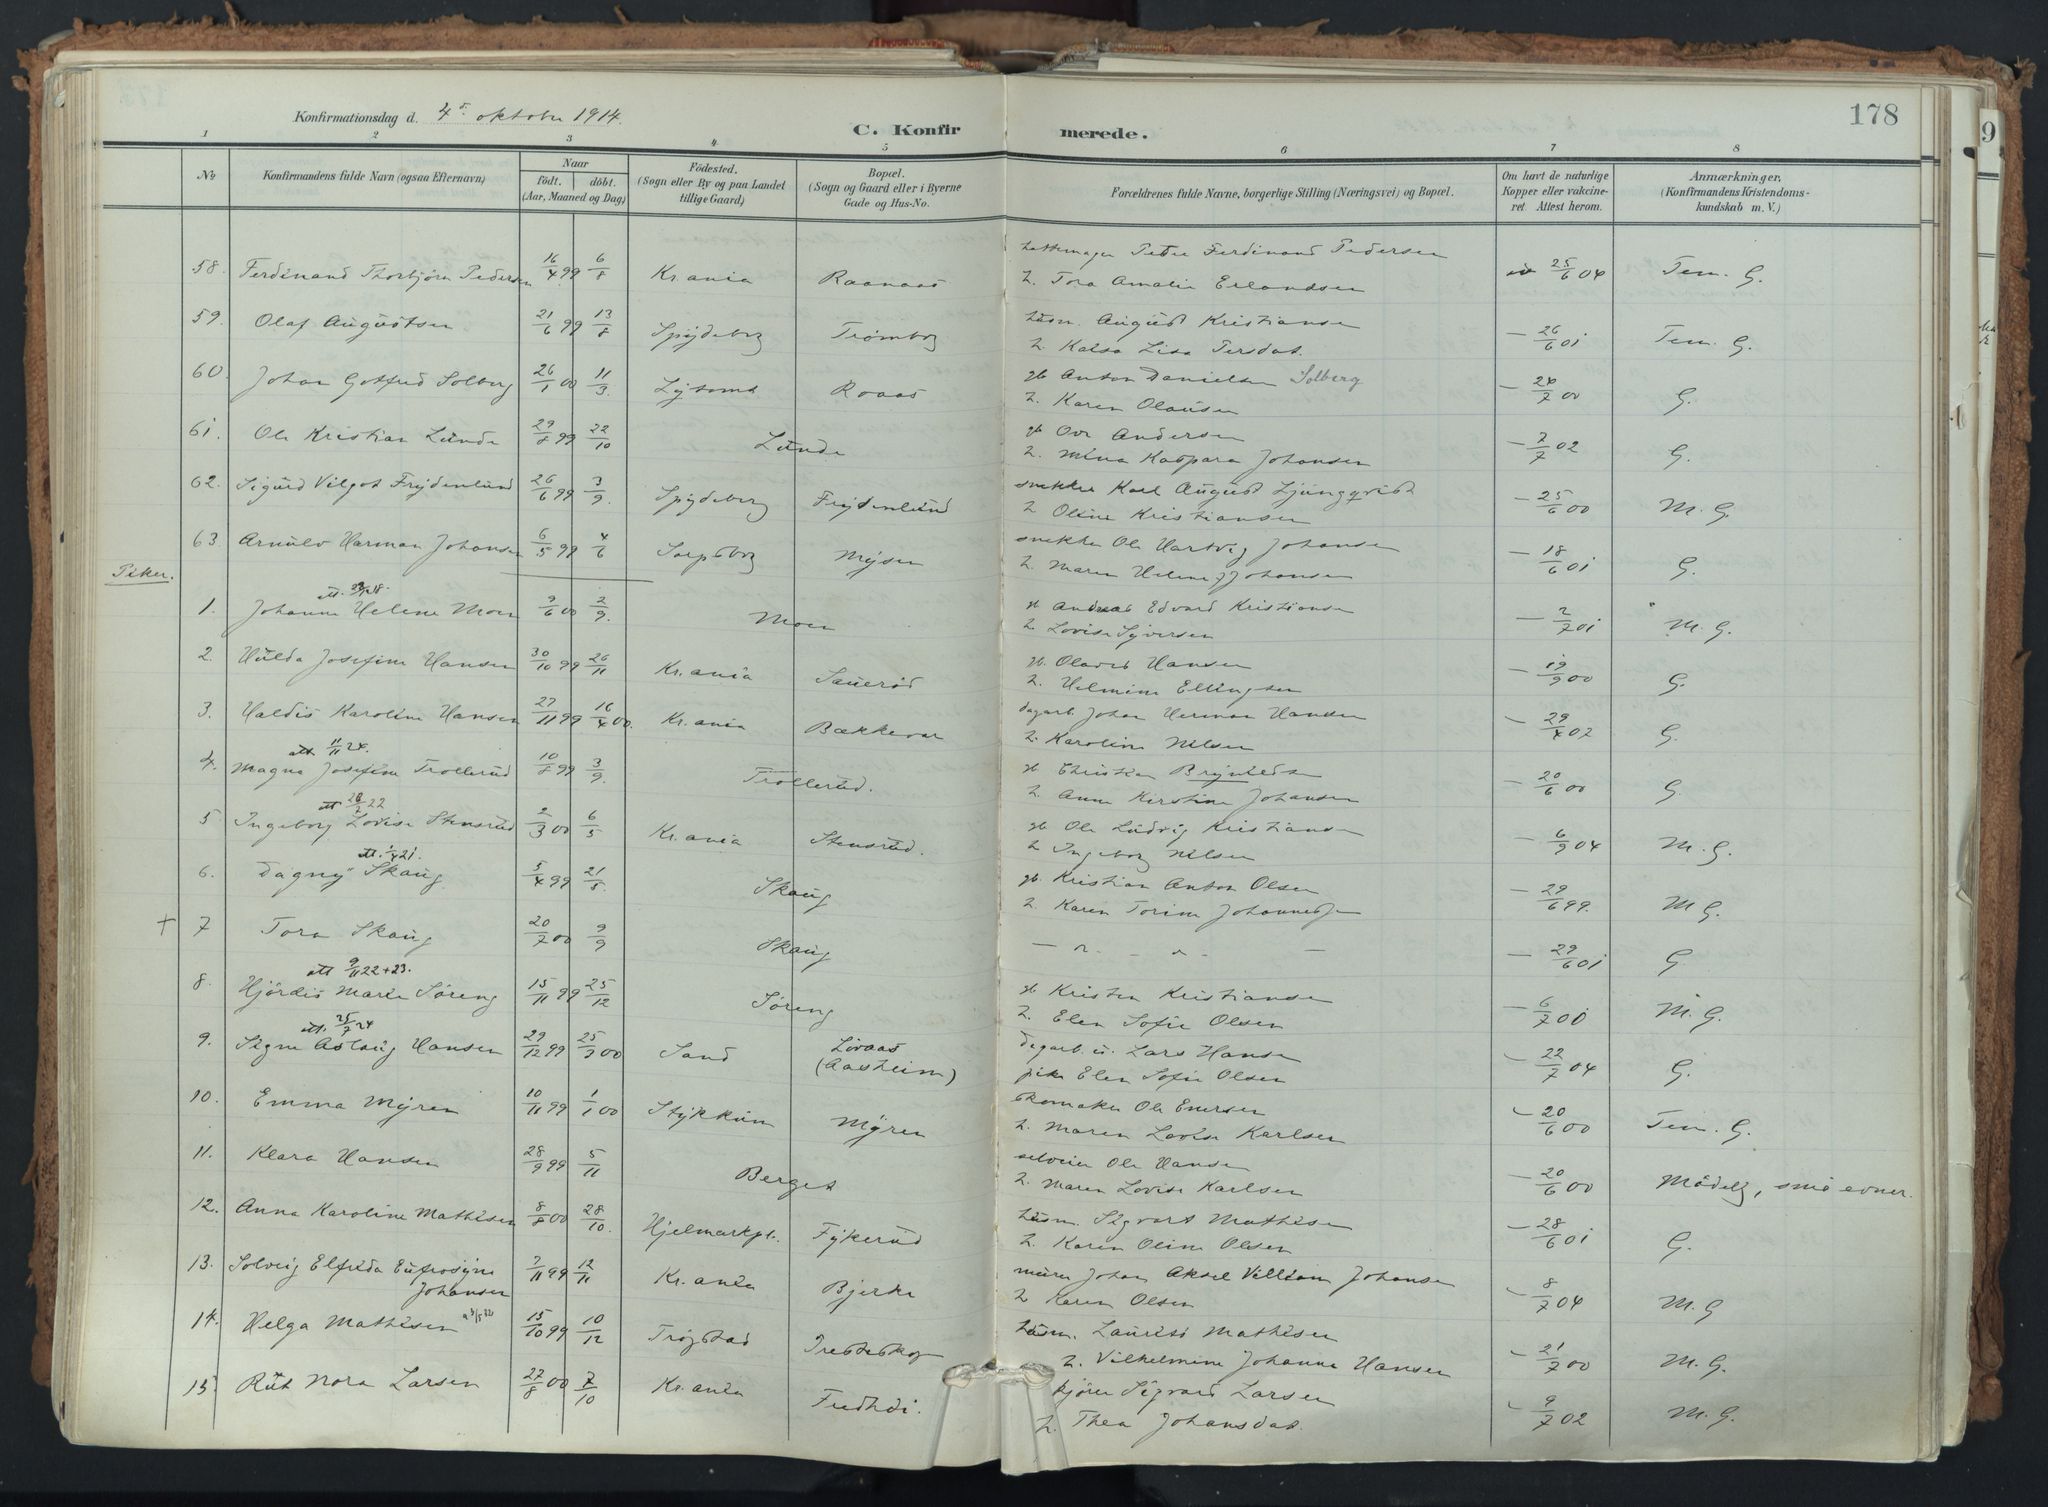 178
Konfirmationsdag d. 4de oktober 1914.
C. Konfirmerede.
1 2 3 4 5 6 7 8
No
Konfirmandens fulde Navn (ogsaa Efternavn)
Naar
födt. döbt.
(Aar, Maaned og Dag)
Födested.
(Sogn eller By og paa Landet
tillige Gaard)
Bopæl.
(Sogn og Gaard eller i Byerne
Gade og Hus-No.
Forældrenes fulde Navne, borgerlige Stilling (Næringsvei) og Bopæl.
Om havt de naturlige
Kopper eller vakcine-
ret. Attest herom.
Anmærkninger,
(Konfirmandens Kristendoms-
kundskab m. V.)
58. Ferdinand Thorbjörn Pedersen 16/4 99 6/8 Kr.ania Raanaas hattemager Peter Ferdinand Pedersen 25/6 04 Tem. G.
2. Tora Amalie Erlandsen
59. Olaf Augustsen 21/6 99 13/8 Spydeberg Trömborg husm. August Kristiansen – 26/6 01 Tem. G.
2. Kaisa Lisa Persdat.
60. Johan Gotfred Solberg 26/1 00 11/3 Roaas gb Anton Danielsen Solberg G.
2. Karen Olausen
61. Ole Kristian Lunde 29/8 99 22/10 Lunde gb Ove Andersen – 7/7 02 G.
2. Mina Kaspara Johansen
62. Sigurd Vilgot Frydenlund 26/6 99 3/9. Spydeberg Frydenlund snekker Karl August Ljungqvist – 25/6 00 M. G.
2 Oline Kristiansen
63. Arnulv Herman Johansen 6/5 99 4/6 Sarpsborg Mysen snekker Ole Hartvig Johansen – 18/6 01 G.
2. Maren Helene Johansen
Piker.
1. Johanne Helene Moen 9/6 00 2/9. Moen gb Andreas Edvard Kristiansen – 2/7 01 M. G.
2 Lovise Syversen
2. Hulda Josefine Hansen 30/10 99 26/11 Kr.ania Saueröd gb. Olaves Hansen – 19/9 00 G.
2. Helmine Ellingsen
3. Haldis Karoline Hansen 27/11 99 16/4 00 Kr.ania Bækkevar dagarb. Johan Herman Hansen – 29/4 02 G.
2. Karoline Nilsen
att. 11/11 24.
4. Magna Josefine Trollerud 10/8 99 3/9. Trollerud. gb Christian Bryntedsen – 20/6 00 G.
2. Anne Kirstine Johansen
att 20/2 22
5 Ingeborg Lovise Stensrud 2/3 00 6/5 Kr.ania Stensrud. gb. Ole Ludvig Kristiansen – 6/9 04 M. G.
2 Ingeborg Nilsen
att. 1/4 21.
6. Dagny Skaug 5/4 99 21/5. Skaug gb. Kristian Anton Olsen – 29/6 99. M G.
2. Karen Torine Johannesen
+ 7 Tora Skaug 20/7 00 9/9 Skaug — " — " — – 29/6 01 G.
att 9/11 22+23.
8. Hjördis Marie Söreng 15/11 99 25/12 Söreng gb Kristen Kristiansen M. G.
2. Elen Sofie Olsen
att. 25/7 24
9. Signe Aslaug Hansen 29/12 99 25/3 00 Sand Lövaas (Aasheim) dagarb. u. Lars Hansen – 22/7 04 G.
pike Elen Sofie Olsen
10. Emma Myren 10/11 99 1/1 00 Stykkun Myren skomaker Ole Enersen – 20/6 00 Tem. G.
2. Maren Lovise Karlsen
11. Klara Hansen 28/9 99 5/11 Berget selveier Ole Hansen – 20/6 00 Mådelg, små evner.
2. Maren Lovise Karlsen
12. Anna Karoline Mathisen 8/8 00 28/10. Hjelmarkpl. Fykerud husm. Sigvart Mathisen – 28/6 01 G.
2. Karen Oline Olsen
13. Solveig Elfrida Eufrosyne Johansen 7/11 99 12/11 Kr.ania Bjerke murer Johan Aksel Villiam Johansen – 8/7 04 M. G
2 Karen Olsen
14. Helga Mathisen 15/10 99 10/12 Trögstad husm. Laurits Mathisen – 21/7 00 M. G.
2. Vilhelmine Johanne Hansen
15. Rut Nora Larsen 27/8 00 7/10 Kr.ania Fredhei. kjörer Sigvard Larsen – 9/7 02 M. G.
2. Thea Johansdat.